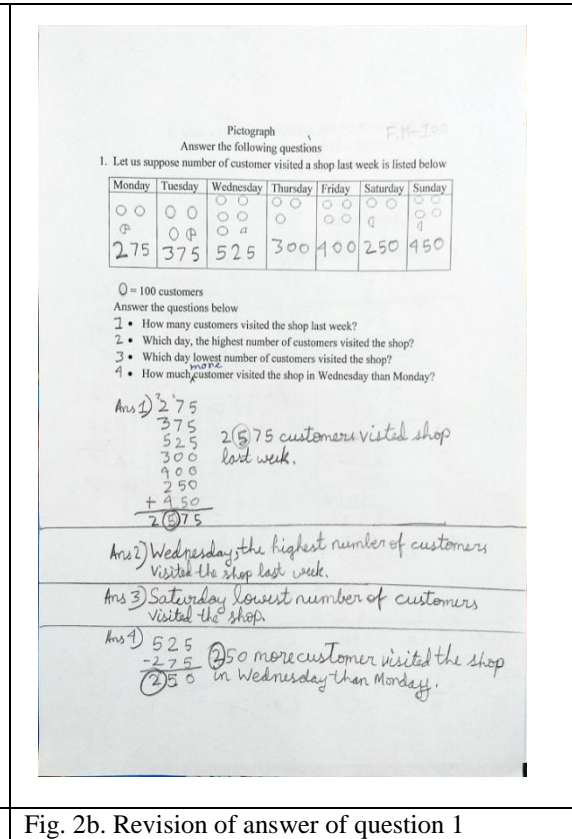 Pictograph
F.M-100
Answer the following questions
1. Let us suppose number of customer visited a shop last week is listed below
Monday Tuesday Wednesday Thursday Friday Saturday Sunday
275 375 525 300 400 250 450
O = 100 customers
Answer the questions below
1 • How many customers visited the shop last week?
2 • Which day, the highest number of customers visited the shop?
3 • Which day lowest number of customers visited the shop?
4 • How much more customer visited the shop in Wednesday than Monday?
Ans 1) 275
375
525 2575 customers visted shop
300 last week.
400
250
+ 450
2575
Ans 2) Wednesday, the highest number of customers
visited the shop last week.
Ans 3) Saturday lowest number of customers
visited the shop.
Ans 4) 525
-275 250 more customer visited the shop
250 in Wednesday than Monday.
Fig. 2b. Revision of answer of question 1